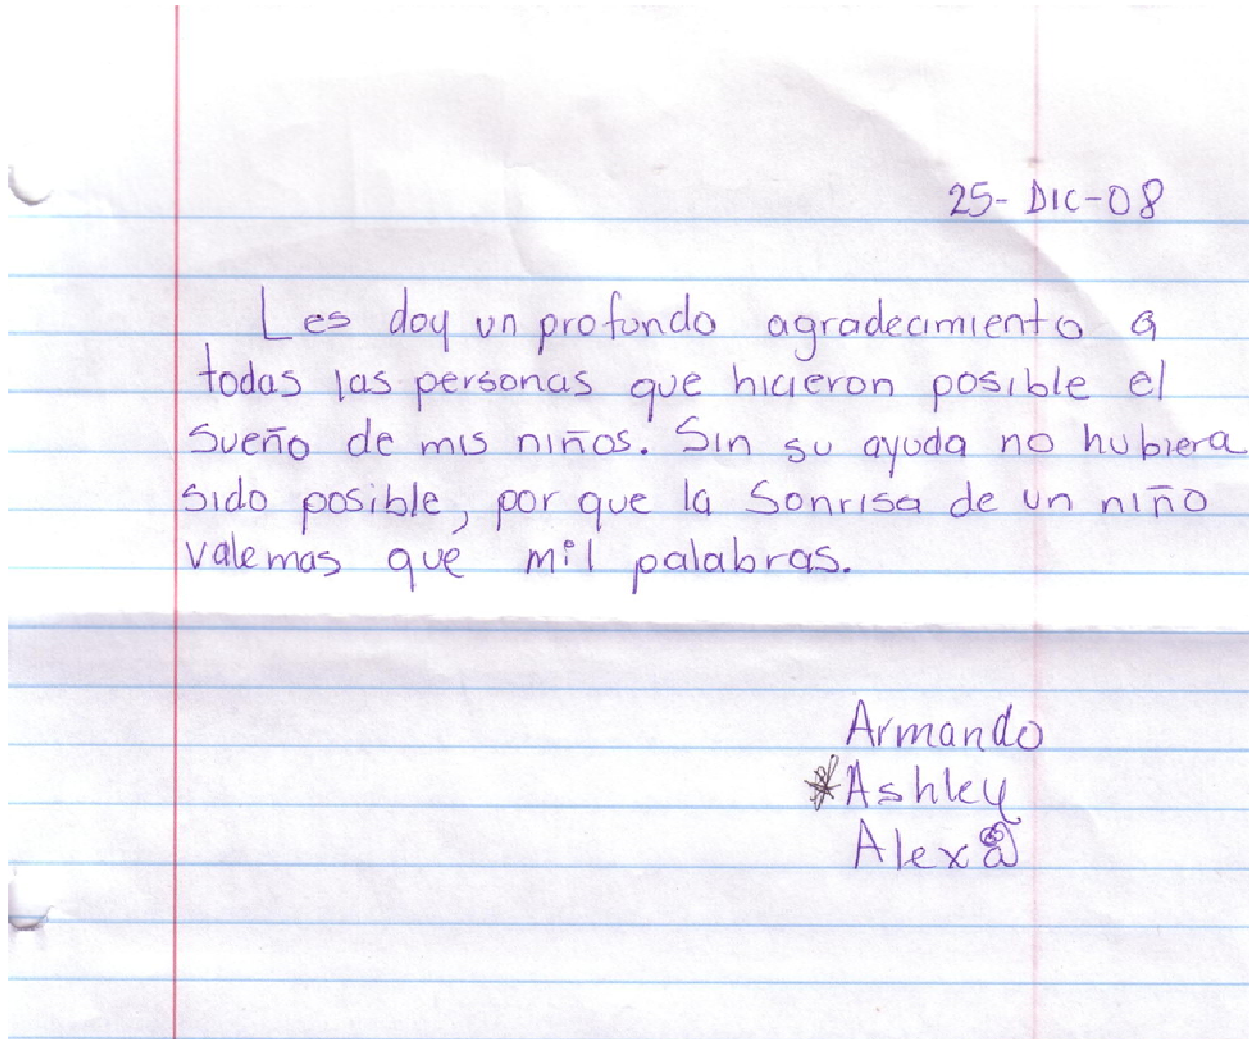 25- DIC-08
Les doy un profundo agradecimiento a
todas las personas que hicieron posible el
sueño de mis niños. Sin su ayuda no hubiera
sido posible, por que la Sonrisa de un niño
vale mas que mil palabras.
Armando
*Ashley
Alexa